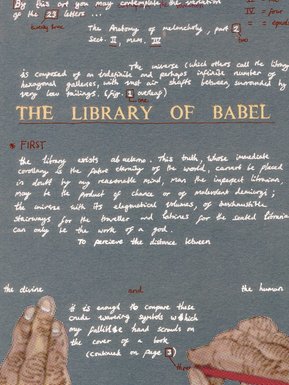 By this art you may contemplate the variation
of the 23 letters ...
IV = four
The Anatomy of melancholy, part 2
two
Sect. II, mem. IV
The universe (which others call the library)
is composed of an indefinite and perhaps infinite number of
hexagonal galleries, with vast air shafts between, surrounded by
very low railings. (fig. 1 overleaf)
one
THE LIBRARY OF BABEL
* FIRST
the library exists ab aeterno. This truth, whose immediate
corollary is the future eternity of the world, cannot be placed
in doubt by any reasonable mind, man the imperfect librarian,
may be the product of chance or of malevolent demiurgi;
the universe with its elegant volumes, of inexhaustible
stairways for the traveller and latrines for the seated librarian
can only be the work of a god.
To perceive the distance between
the divine and the human
it is enough to compare these
crude wavering symbols which
my fallible hand scrawls on
the cover of a book
(continued on page 3)